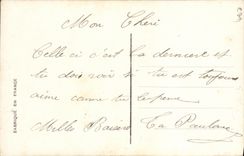 Mon Chéri
Celle ci c'est la dernière et
tu dois voir si tu est toujours
aimé comme tu le pense
Milles Baisers Ta Paulane
FABRIQUÉ EN FRANCE